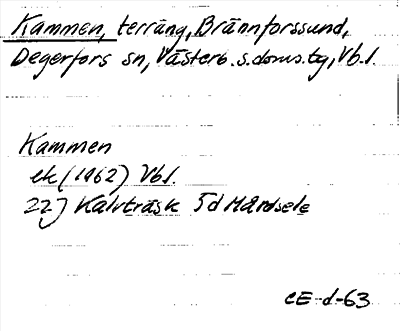 Kammen, terräng, Brännforssund,
Degerfors sn, Västerb. s. doms. tg, Vb.l.
Kammen
ek (1962) Vb.l.
22J Kalvträsk 5d Mårdsele
CE-d-63